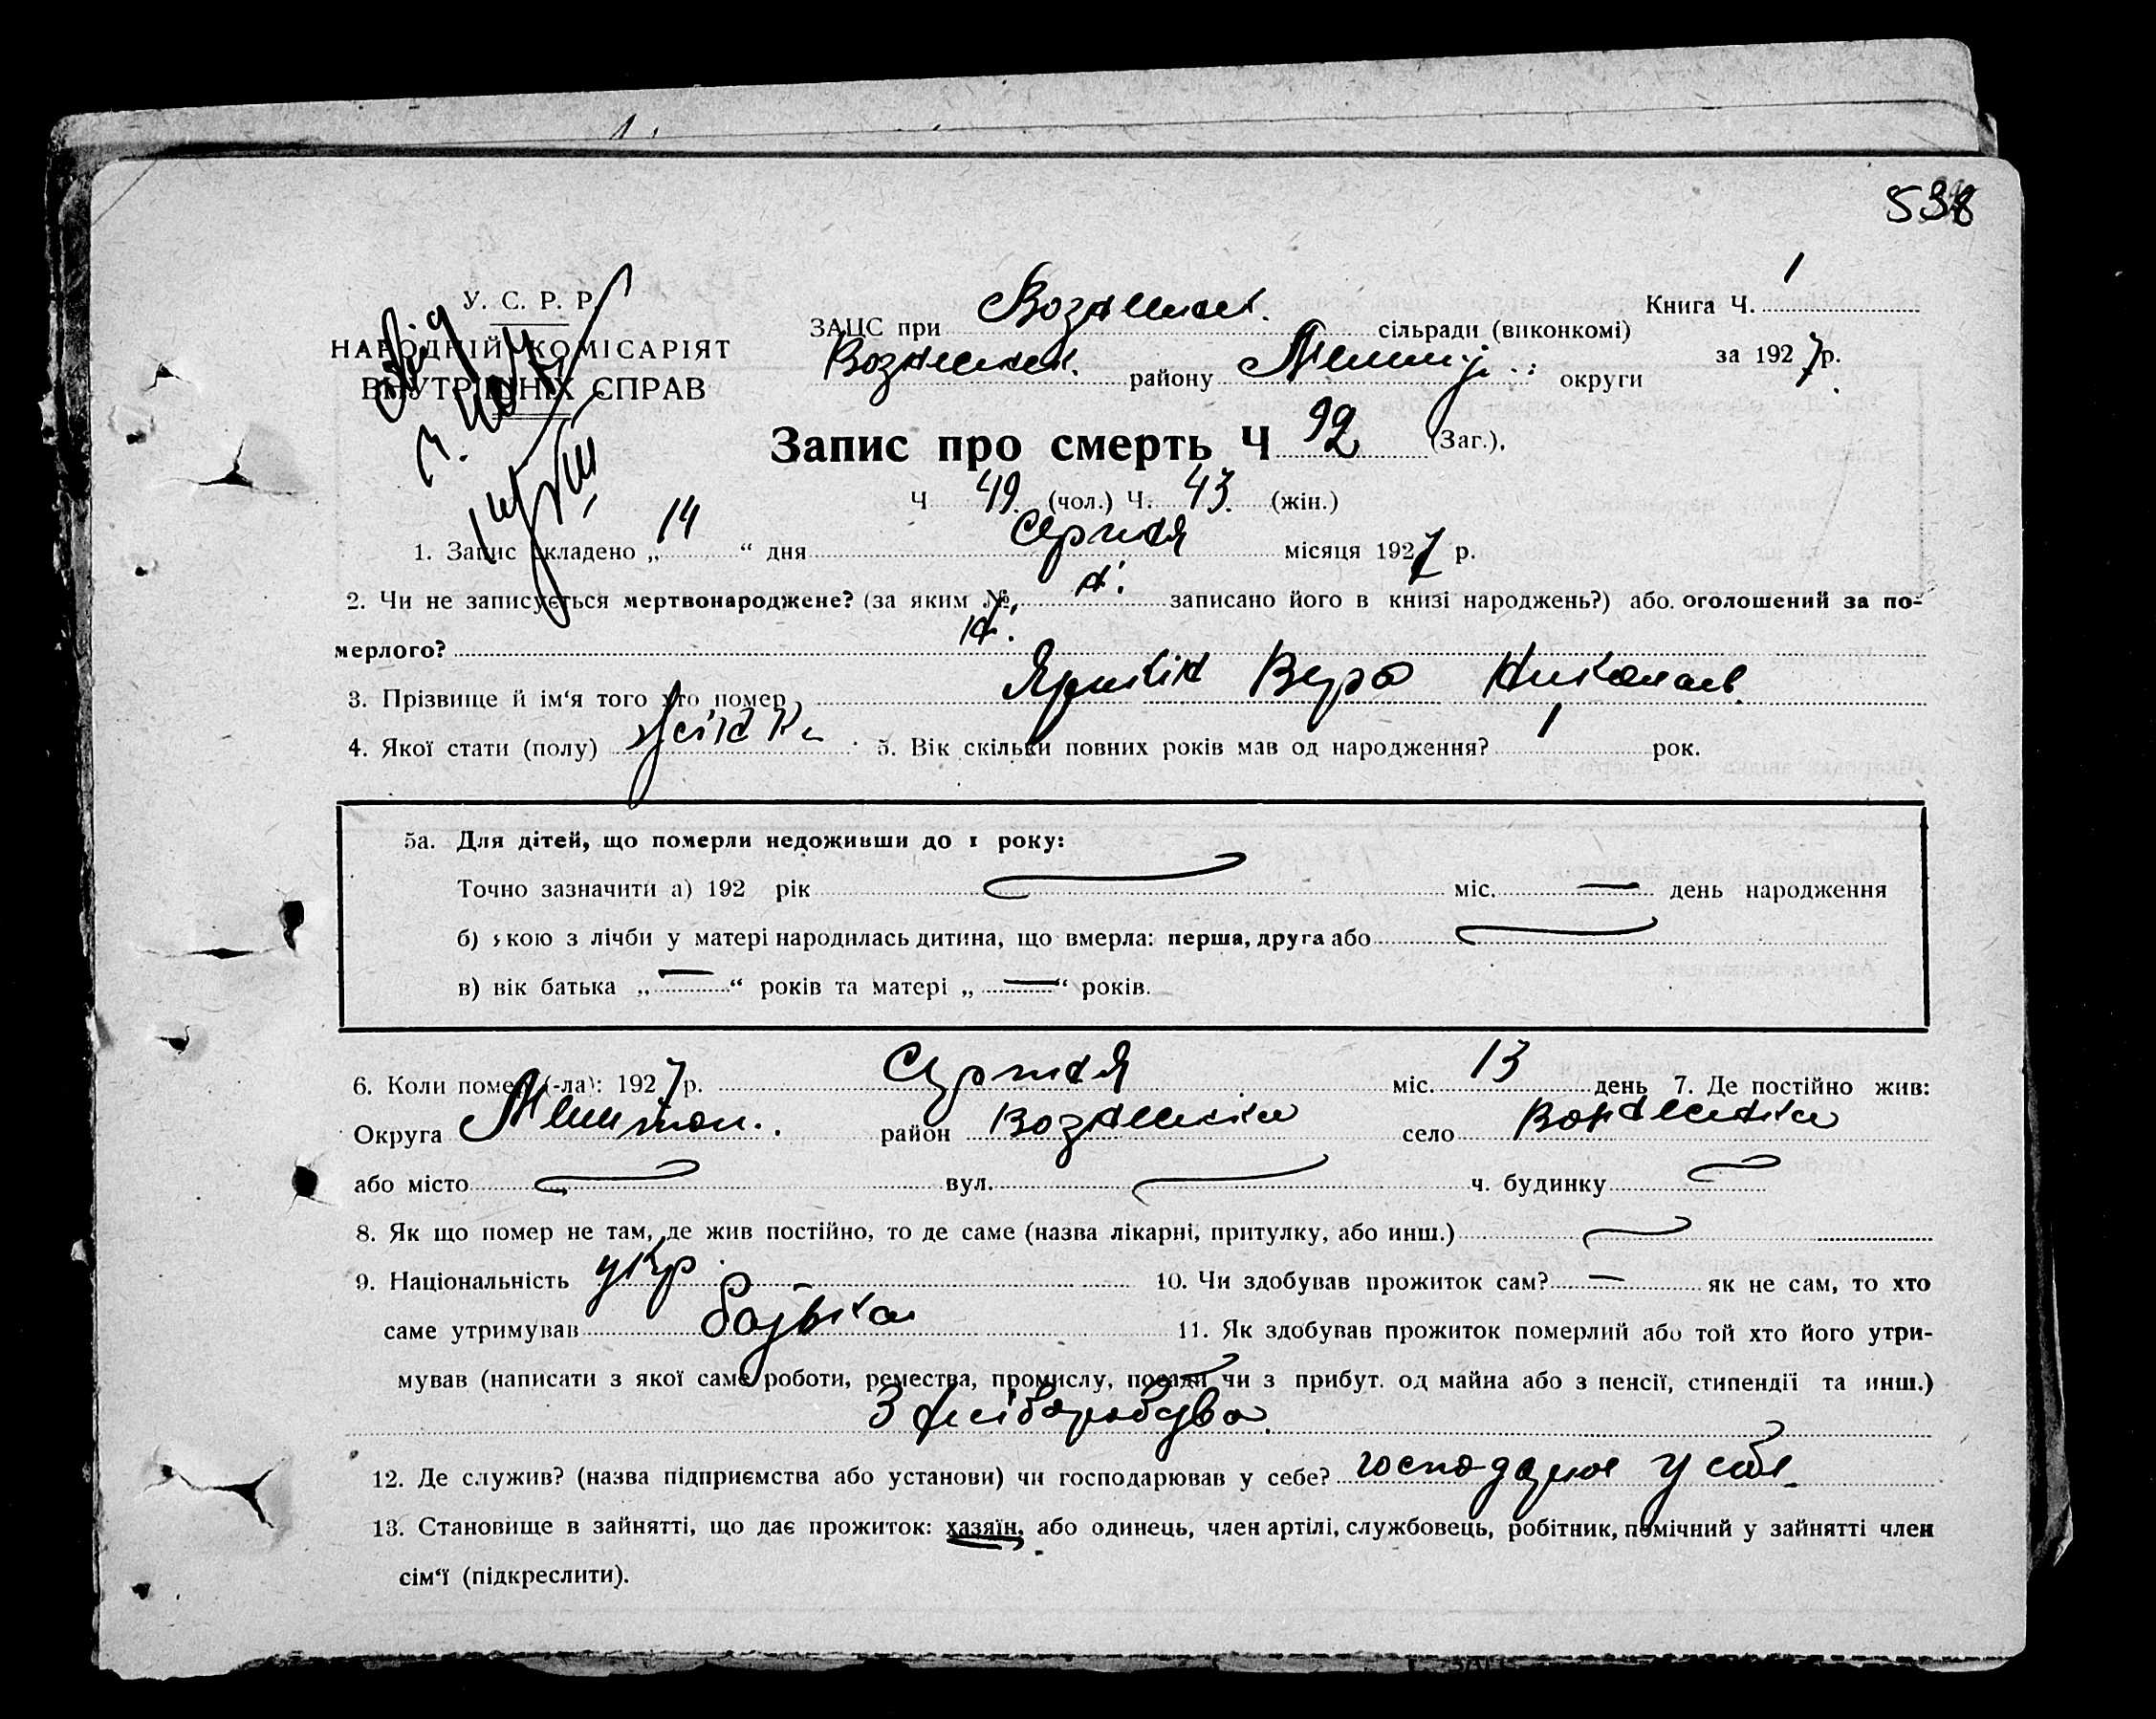 538
У. С. Р. Р.
НАРОДНІЙ КОМІСАРІЯТ
ВНУТРІШНІХ СПРАВ
ЗАЦС при Вознесенськ. сільради (виконкомі)
Книга Ч. 1
району округи
за 1927 р.
Запис про смерть Ч 92 (Заг.),
Ч 49. (чол.) Ч. 43. (жін.)
1. Запис складено „ 14 “ дня Серпня місяця 1927 р.
2. Чи не записується мертвонароджене? (за яким №, н. записано його в книзі народжень?) або оголошений за по-
мерлого? н.
3. Прізвище й ім‘я того хто помер Вера Николаев.
4. Якої стати (полу) жіноки 5. Вік скільки повних років мав од народження? 1 рок.
5а. Для дітей, що померли недоживши до 1 року:
Точно зазначити а) 192 рік — міс. — день народження
б) якою з лічби у матері народилась дитина, що вмерла: перша, друга або —
в) вік батька „ — “ років та матері „ — “ років.
6. Коли помер (-ла): 1927 р. Серпня міс. 13 день 7. Де постійно жив:
Округа район село
або місто — вул. — ч. будинку —
8. Як що помер не там, де жив постійно, то де саме (назва лікарні, притулку, або инш.) —
9. Національність укр. 10. Чи здобував прожиток сам? — як не сам, то хто
саме утримував батько 11. Як здобував прожиток померлий або той хто його утри-
мував (написати з якої саме роботи, ремества, промислу, посади чи з прибут. од майна або з пенсії, стипендії та инш.)
З хліборобства.
12. Де служив? (назва підприємства або установи) чи господарював у себе? господарює у себе
13. Становище в зайнятті, що дає прожиток: хазяїн, або одинець, член артілі, службовець, робітник, помічний у зайнятті член
сім‘ї (підкреслити).